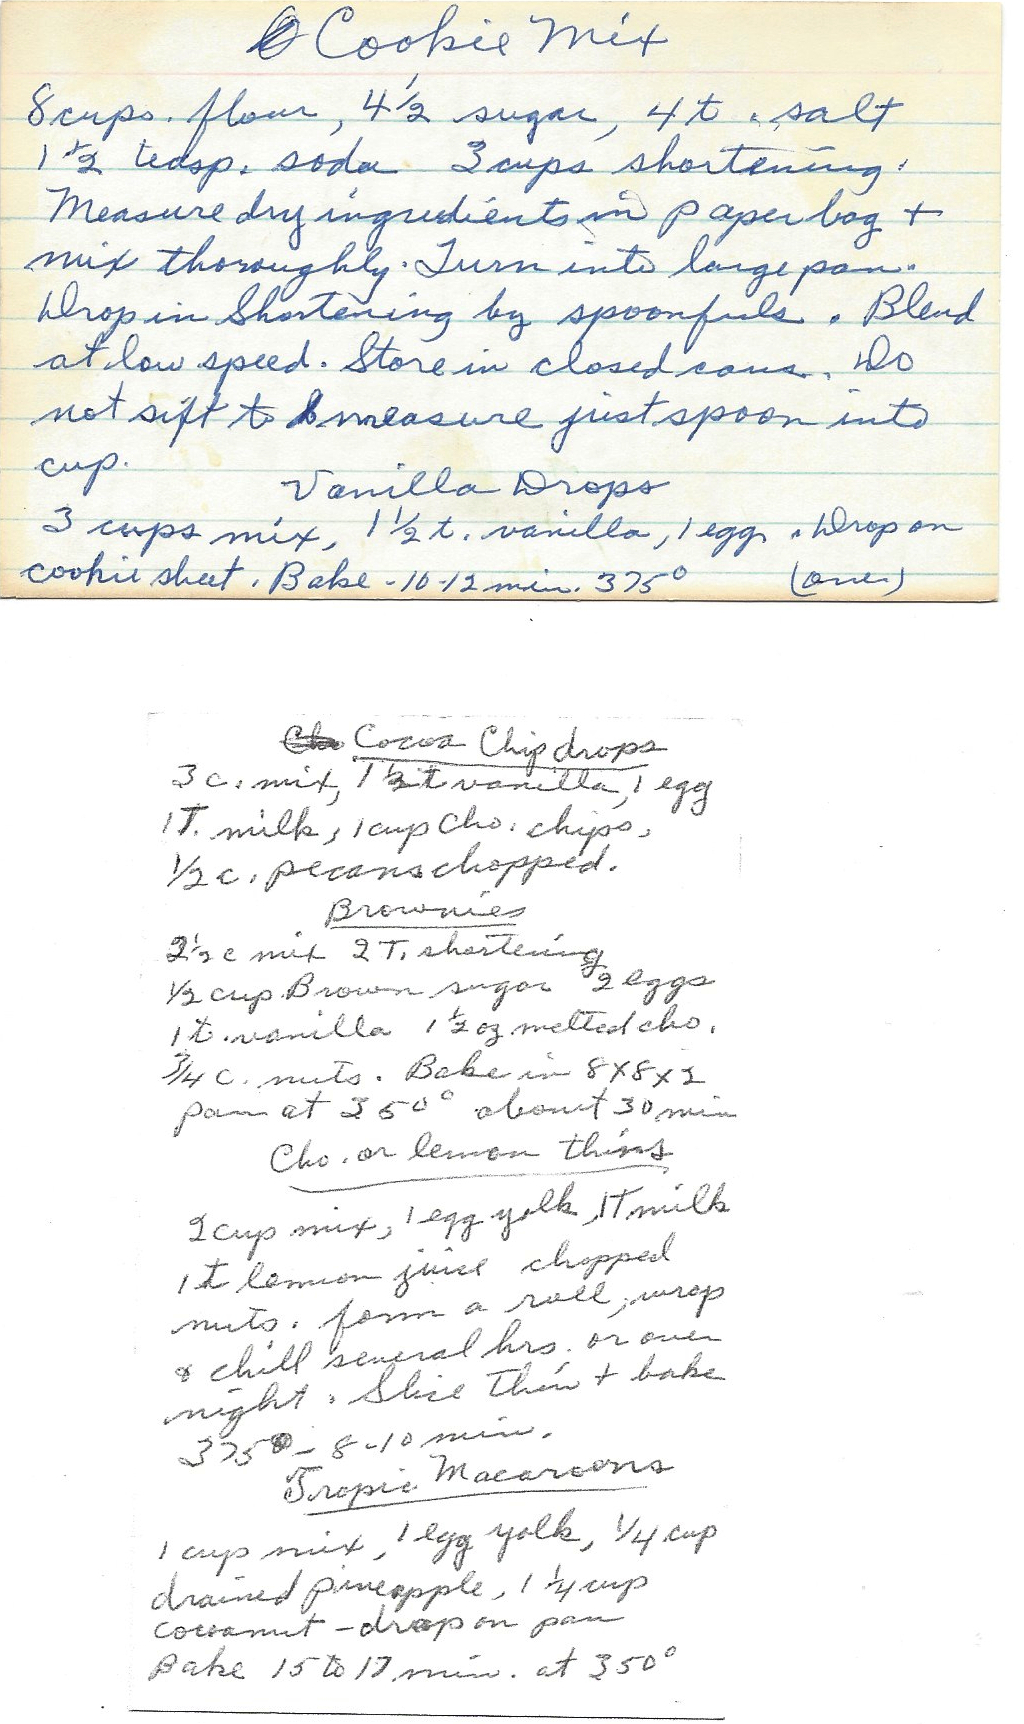 Cookie Mix
8 cups. flour, 4 1/2 sugar, 4 t. salt
1 1/2 teasp. soda 3 cups shortening.
Measure dry ingredients in paper bag +
mix thoroughly. Turn into large pan.
Drop in Shortening by spoonfuls. Blend
at low speed. Store in closed cans. Do
not sift to measure just spoon into
cup.
Vanilla Drops
3 cups mix, 1 1/2 t. vanilla, 1 egg. Drop on
cookie sheet. Bake - 10-12 min. 375°
(over)
Cocoa Chip drops
3 c. mix, 1 1/2 t vanilla, 1 egg
1 T. milk, 1 cup Cho. chips,
1/2 c. pecans chopped.
Brownies
2 1/2 c mix 2 T. shortening
1/2 cup Brown sugar 2 eggs
1 t. vanilla 1 1/2 oz melted cho.
3/4 c. nuts. Bake in 8x8x2
pan at 350° about 30 min
Cho. or lemon thins
2 cup mix, 1 egg yolk, 1T milk
1 t lemon juice chopped
nuts. form a roll, wrap
& chill several hrs. or over
night. Slice thin + bake
375° - 8-10 min.
Tropic Macaroons
1 cup mix, 1 egg yolk, 1/4 cup
drained pineapple, 1 1/4 cup
cocoanut - drop on pan
Bake 15 to 17 min. at 350°